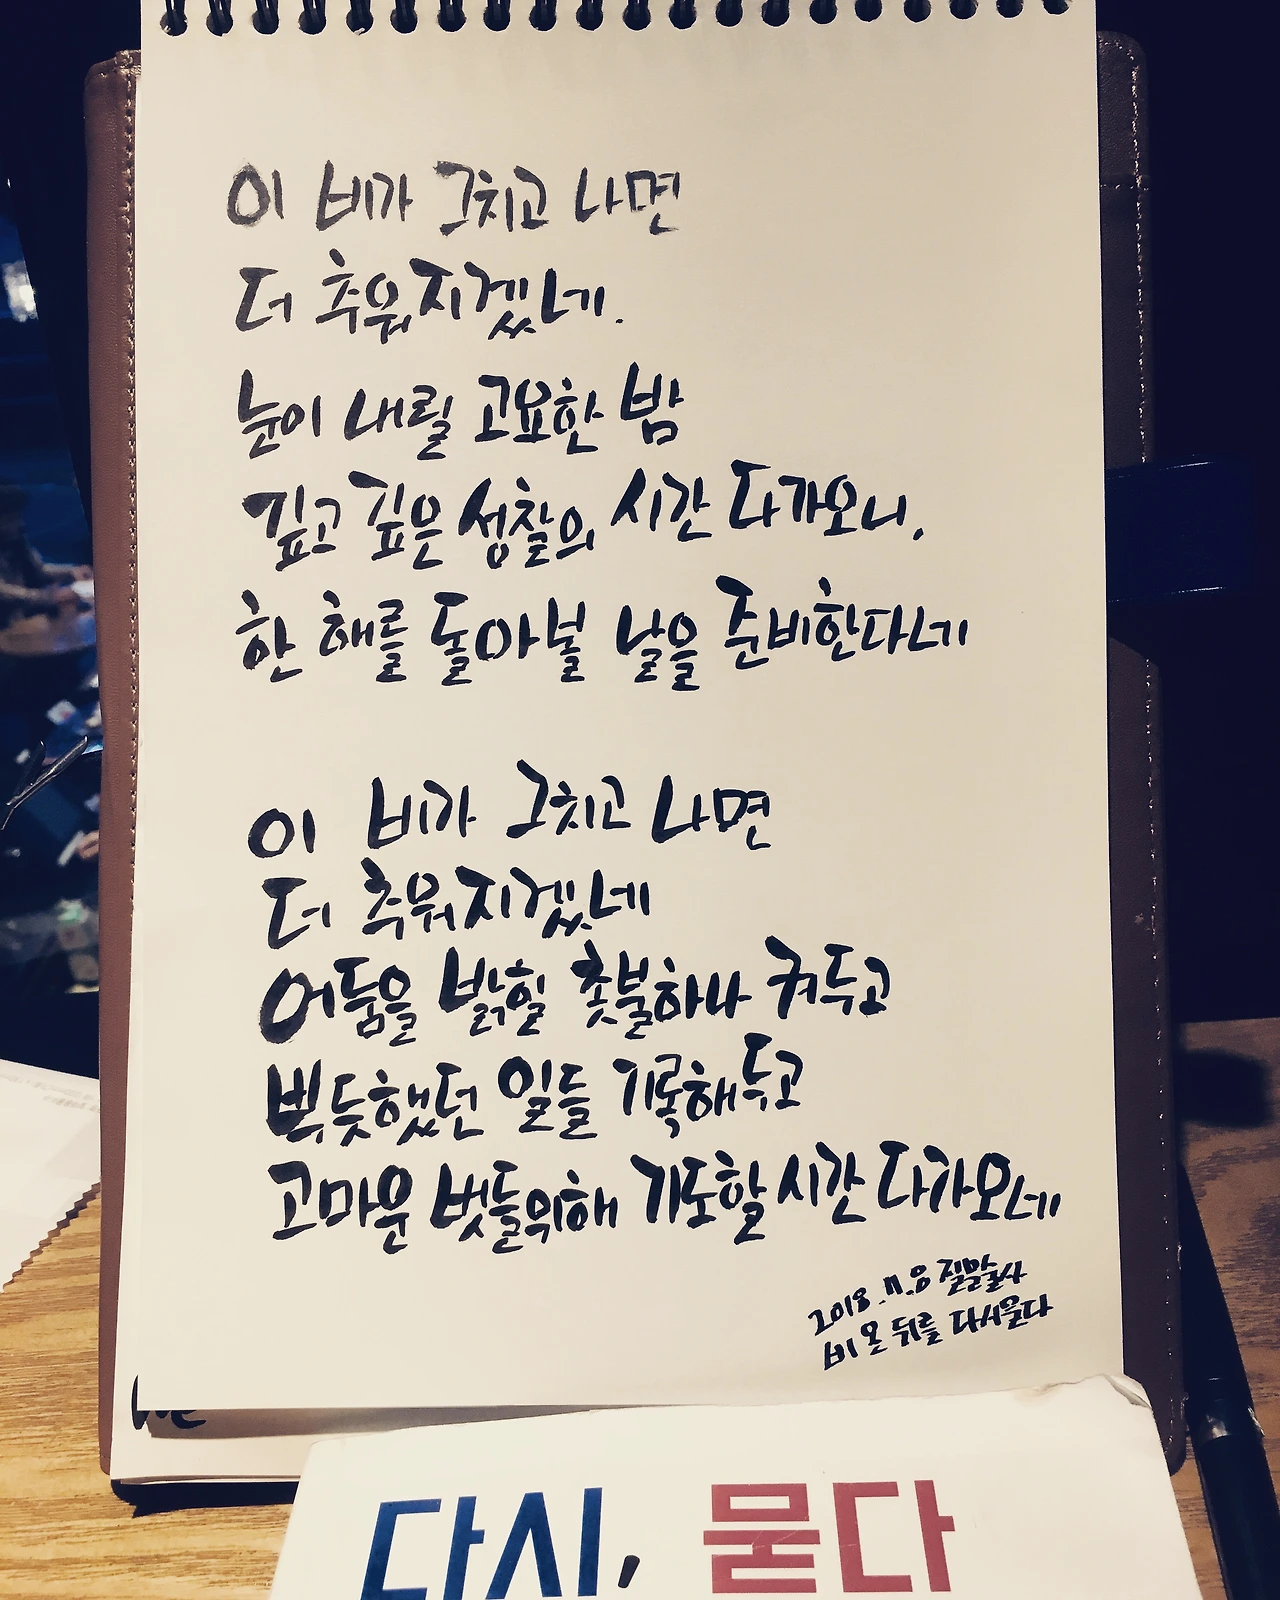 이 비가 그치고 나면
더 추워지겠네.
눈이 내릴 고요한 밤
깊고 깊은 성찰의 시간 다가오니,
한 해를 돌아볼 날을 준비한다네
이 비가 그치고 나면
더 추워지겠네
어둠을 밝힐 촛불하나 켜두고
뿌듯했던 일들 기록해두고
고마운 벗들위해 기도할 시간 다가오네
2018.11.8 질문술사
비 온 뒤를 다시묻다
다시, 묻다